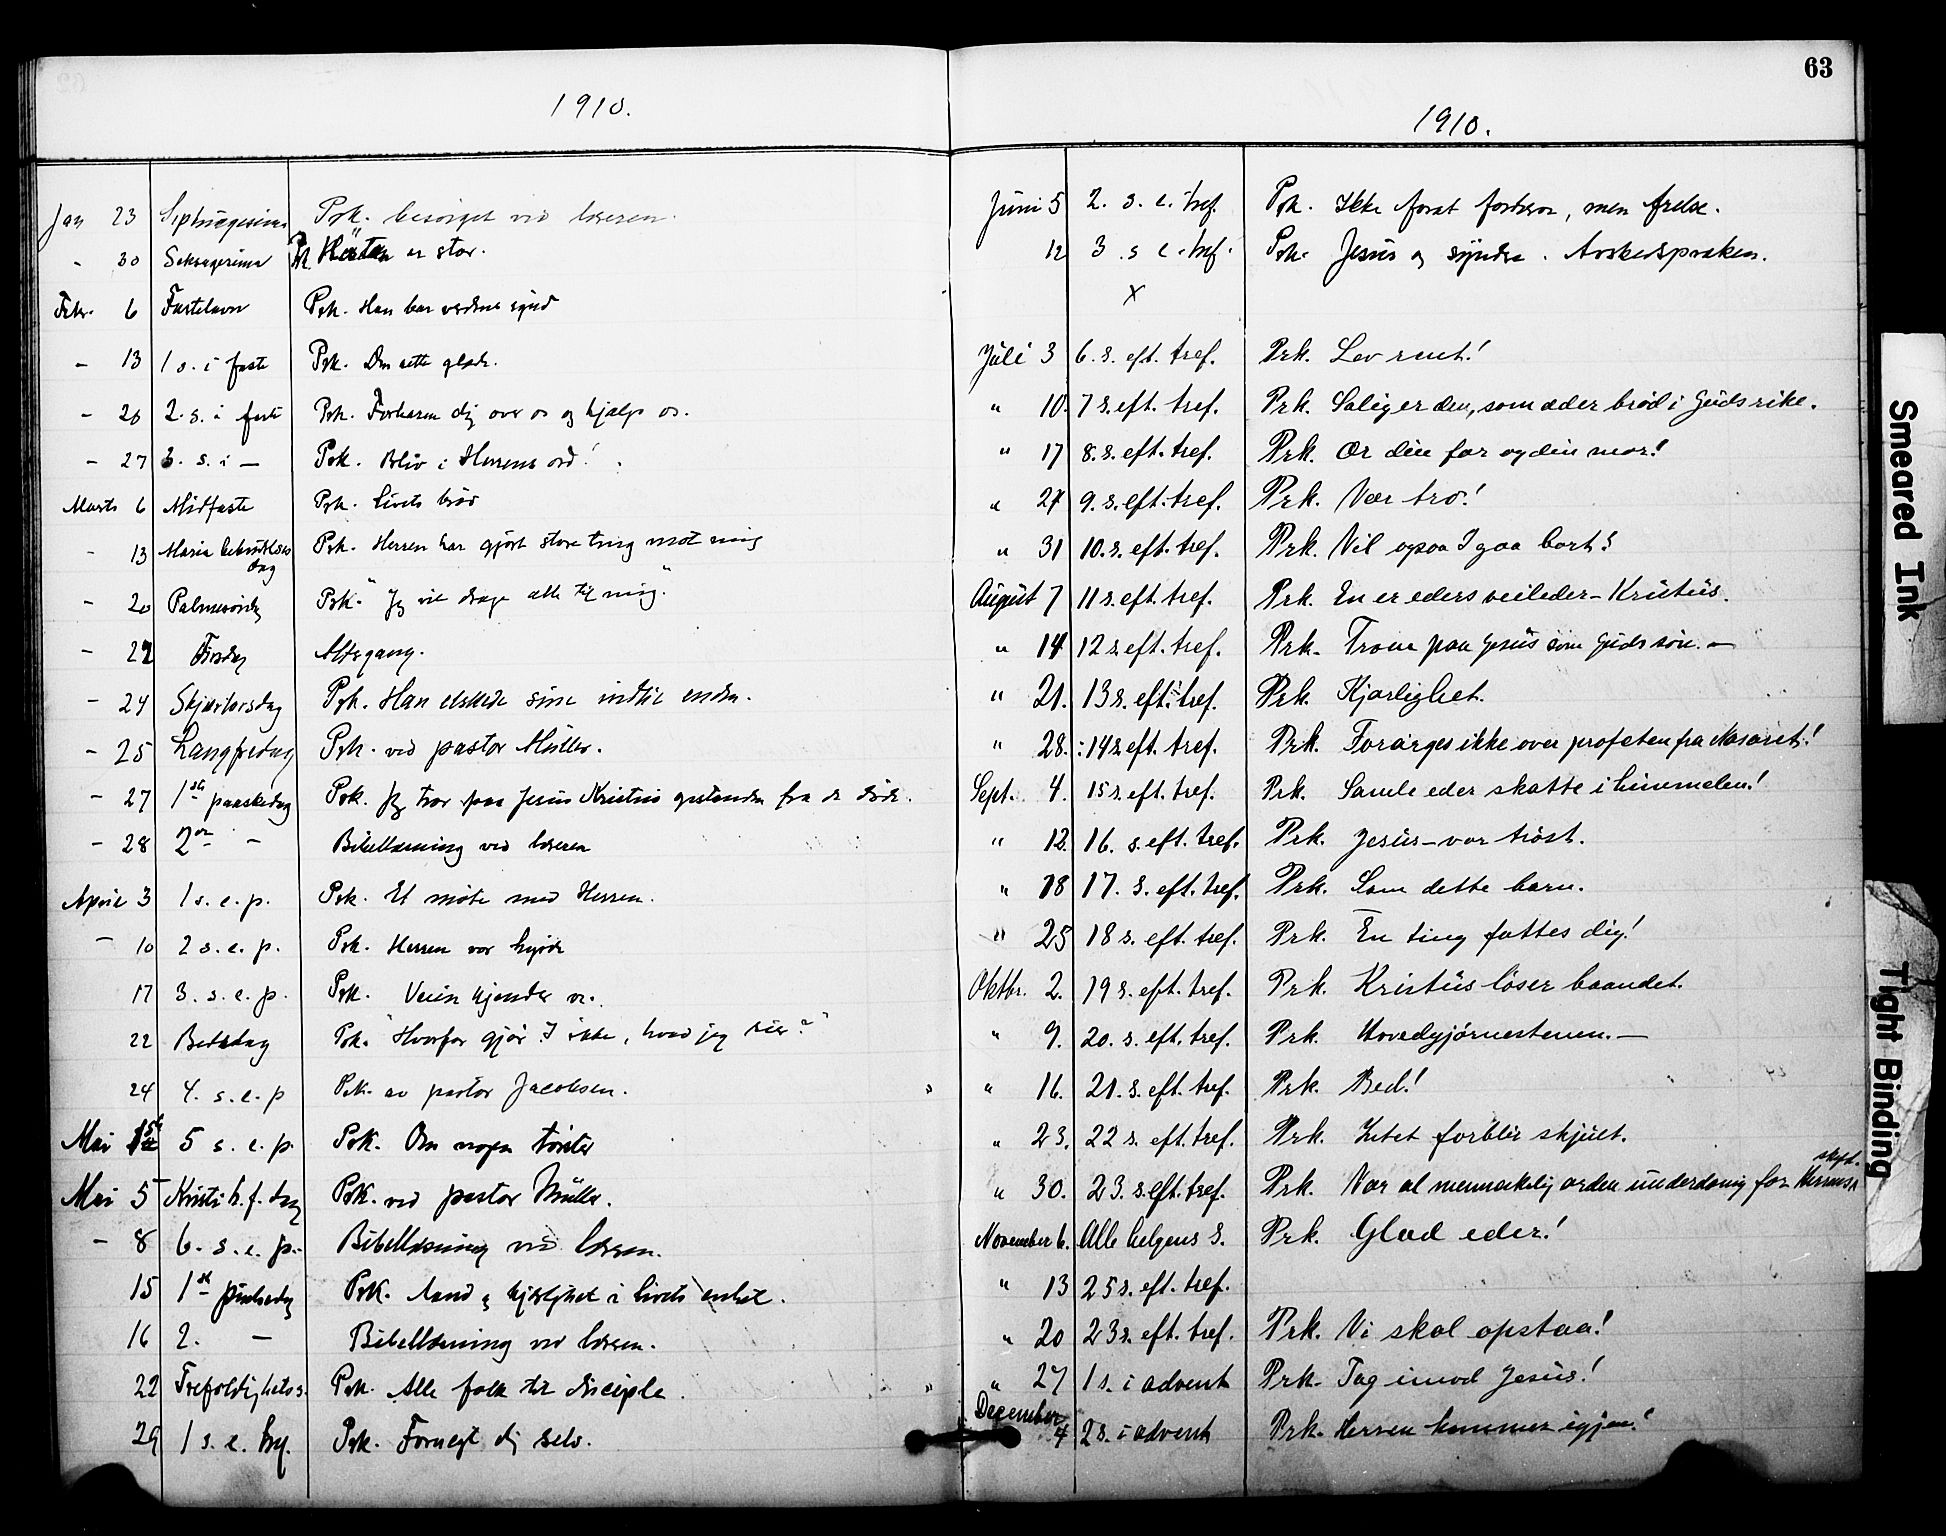 63
1910.
Jan 23 Septuagesima Prk. besørget ved læreren.
- 30 Seksagesima Prk Høsten er stor.
Febr. 6 Fastelavn Prk. Han bar verdens synd
- 13 1 s. i faste Prk. Den rette glæde.
- 20 2. s. i faste Prk. Forbarm dig over os og hjælp os.
- 27 3. s. i - Prk. Bliv i Herrens ord!
Marts 6 Midfaste Prk. Livets brød
- 13 Maria bebudelses dag Prk. Herren har gjort store ting mot mig
- 20 Palmesøndag Prk. "Jeg vil drage alle til mig."
- 22 Tirsdag Altergang.
- 24 Skjærtorsdag Prk. Han elskede sine indtil enden.
- 25 Langfredag Prk. ved pastor Müller.
- 27 1ste paaskedag Prk. Jeg tror paa Jesus Kristus opstanden fra de døde.
- 28 2den - Bibellæsning ved læreren
April 3 1 s. e. p. Prk. Et møte med Herren.
- 10 2 s. e. p. Prk. Herren vor hyrde
17 3. s. e. p. Prk. Veien kjender vi.
22 Bededag Prk. "Hvorfor gjør I ikke, hvad jeg sier?"
24 4. s. e. p Prk. av pastor Jacobsen.
Mai 1ste 5 s. e. p. Prk. Om nogen tørster
Mai 5 Kristi h. f. dag Prk. ved pastor Müller.
- 8 6. s. e. p. Bibellæsning ved læreren.
15 1ste pinsedag Prk. Aand og kjærlighet i livets enhet.
16 2. - Bibellæsning ved læreren.
22 Trefoldighets s. Prk. Alle folk til disciple.
29 1 s. e. tref. Prk. Fornegt dig selv.
1910.
Juni 5 2. s. e. tref. Prk. Ikke forst fordærve, men frelse.
12 3. s. e. tref. Prk. Jesus og syndere. Avskedspræken.
x
Juli 3 6. s. eft. tref. Prk. Lev rent!
" 10. 7 s. eft. tref. Prk. Salig er den, som æder brød i Guds rike.
" 17 8. s. eft. tref. Prk. Ær din far og din mor!
" 24 9. s. eft. tref. Prk. Vær tro!
" 31 10. s. eft. tref. Prk. Vil ogsaa I gaa bort?
August 7 11 s. eft. tref. Prk. En er eders veileder - Kristus.
" 14 12 s. eft. tref. Prk. Troen paa Jesus som Guds søn. -
" 21. 13 s. eft. tref. Prk. Kjærlighet.
" 28. 14 s. eft. tref. Prk. Forarges ikke over profeten fra Nasaret!
Sept. 4. 15 s. eft. tref. Prk. Samle eder skatte i himmelen!
" 12. 16. s. eft. tref. Prk. Jesus - vor trøst.
" 18 17. s. eft. tref. Prk. Som dette barn.
" 25 18 s. eft. tref. Prk. En ting fattes dig!
Oktbr. 2. 19 s. eft. tref. Prk. Kristus løser baandet.
" 9. 20. s. eft. tref. Prk. Hovedhjørnestenen. -
" 16. 21. s. eft. tref. Prk. Bed!
" 23. 22 s. eft. tref. Prk. Intet forblir skjult.
" 30. 23. s. eft. tref. Prk. Vær al menneskelig orden underdanig for Herrens skyld.
November 6. Alle helgens s. Prk. Glæd eder!
" 13 25 s. eft. tref.
" 20 23 s. eft. tref. Prk. Vi skal opstaa!
" 27 1 s. i advent Prk. Tag imod Jesus!
December 4 2 s. i advent Prk. Herren kommer igjen!
Smeared Ink
Tight Binding